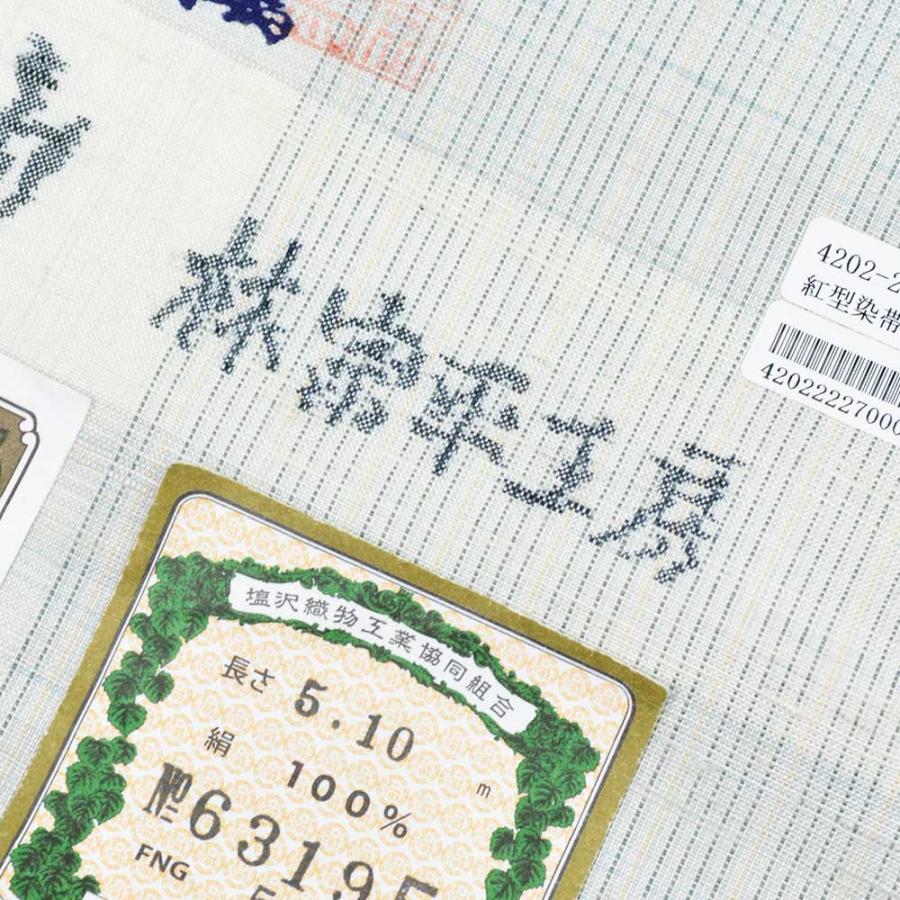 林宗平工房
4202-2
紅型染帯
42022227000
塩沢織物工業協同組合
長さ 5.10 m
絹 100%
№6319
FNG